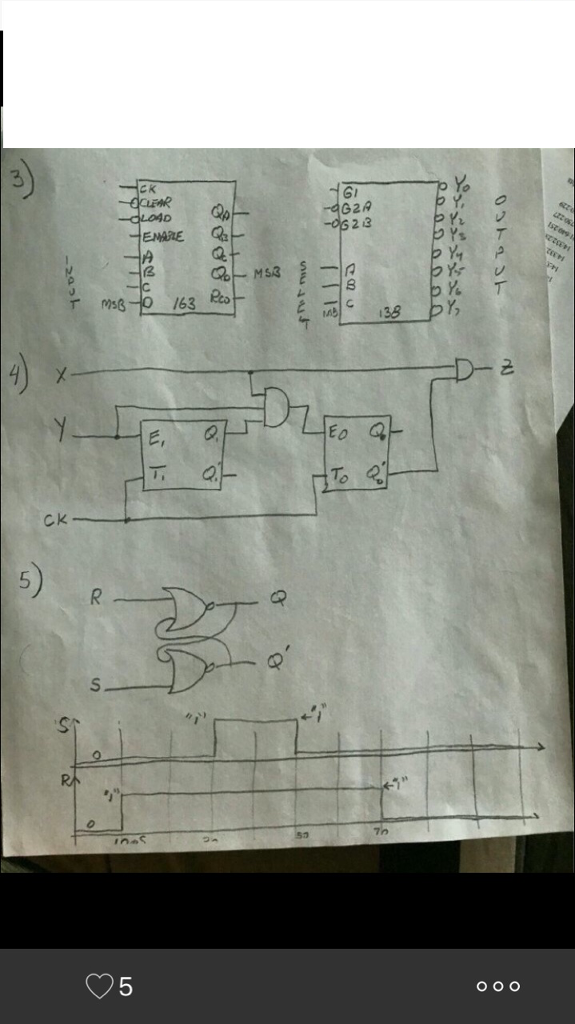 3)
CK
CLEAR
LOAD
ENABLE
A
B
C
D
163
QA
QB
QC
QD
RCO
MSB
MSB
INPUT
G1
G2A
G2B
A
B
C
138
SELECT
Y0
Y1
Y2
Y3
Y4
Y5
Y6
Y7
OUTPUT
4)
X
Y
CK
E1 Q1
T1 Q1'
E0 Q0
T0 Q0'
Z
5)
R
Q
S
Q'
S
0
"1"
"1"
R
0
"1"
"1"
5